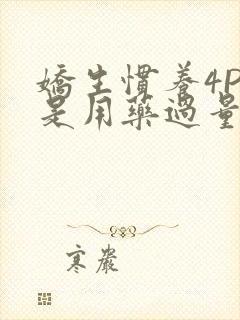 嬌生慣養4P
是用藥過量
寒嚴